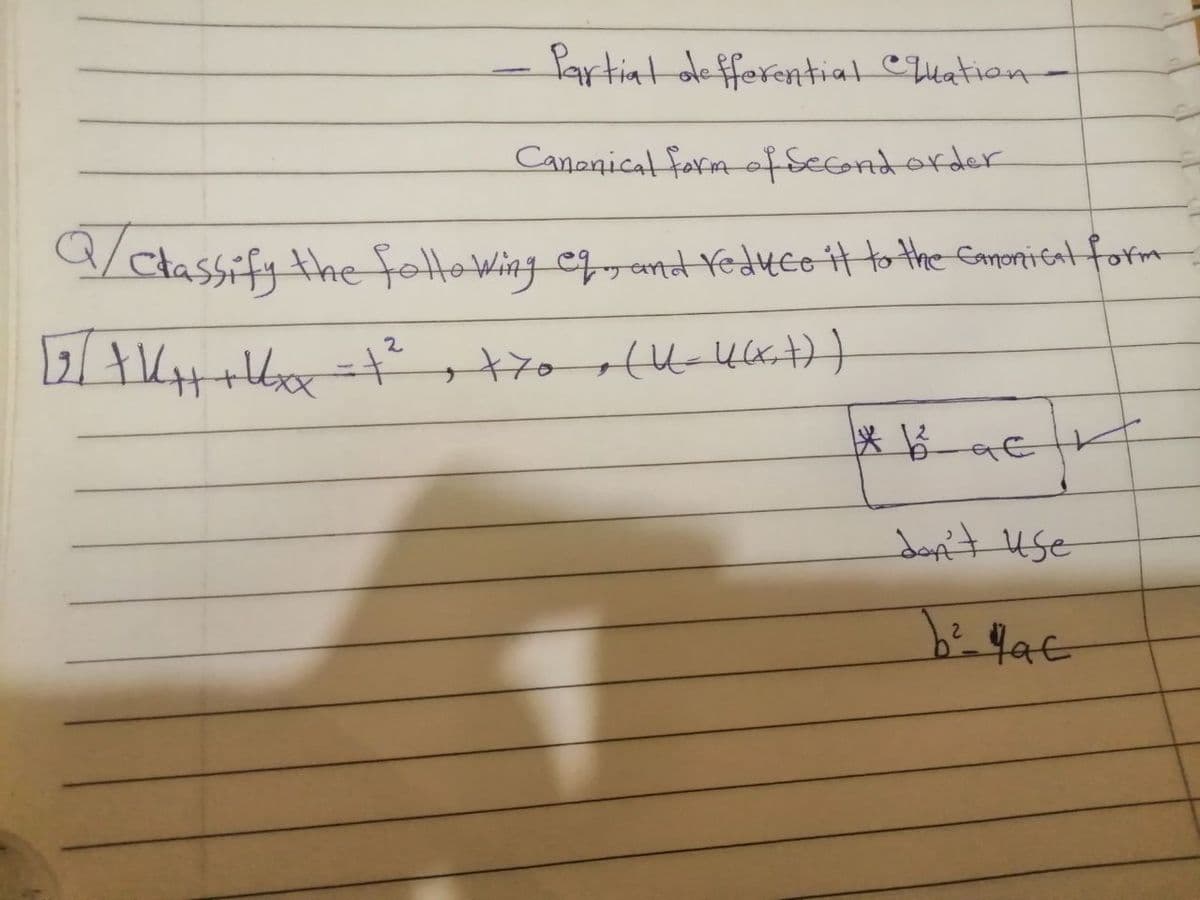 - Partial defferential equation -
Canonical form of Second order
Q/ Classify the following eq., and reduce it to the Canonical form
2/ tUtt + Uxx = t² , t>0 , (U=U(x,t))
* b²-ac ✓
don't use
b²-4ac